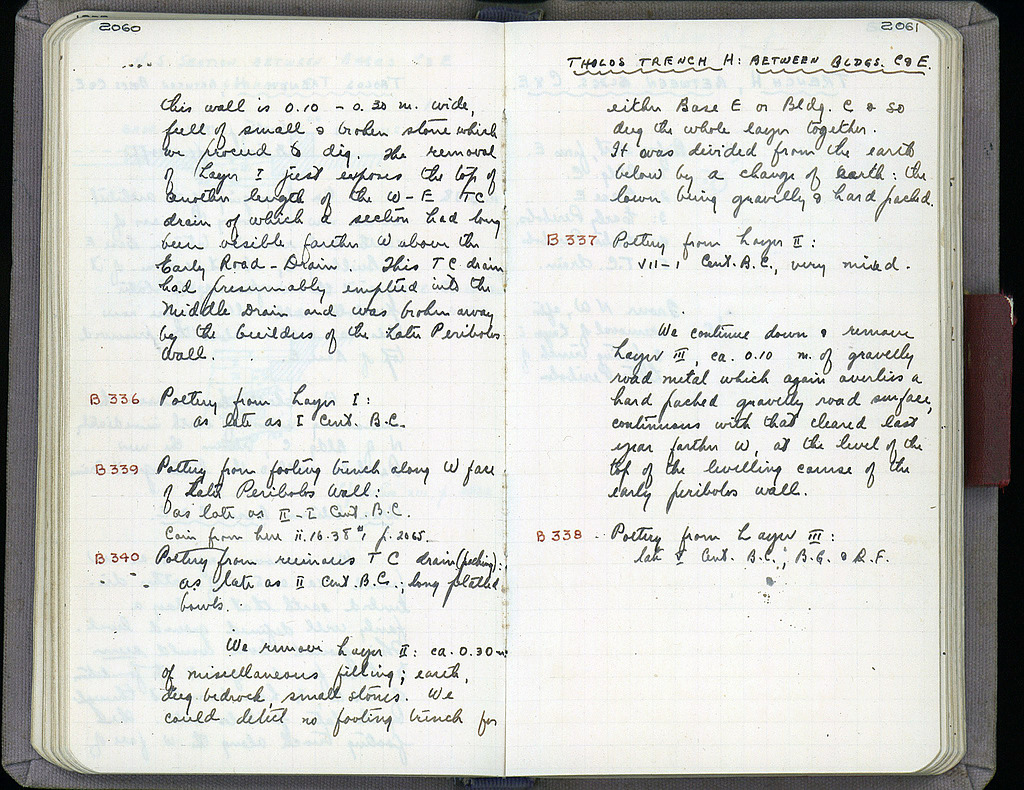 2060
this wall is 0.10 - 0.30 m. wide,
full of small & broken stone which
we proceed to dig. The removal
of Layer I just exposes the top of
another length of the W-E TC
drain of which a section had long
been visible farther W above the
Early Road-Drain. This TC drain
had presumably emptied into the
Middle Drain and was broken away
by the builders of the Late Peribolos
wall.
B 336 Pottery from Layer I:
as late as I Cent. B.C.
B 339 Pottery from footing trench along W face
of Late Peribolos Wall:
as late as II-I Cent. B.C.
Coin from here ii.16.38 #1 p. 2065.
B 340 Pottery from ruinous TC drain (packing):
as late as II Cent. B.C.; long petalled
bowls.
We remove Layer II: ca. 0.30 m
of miscellaneous filling; earth,
dug bedrock, small stones. We
could detect no footing trench for
2061
THOLOS TRENCH H: BETWEEN BLDGS. C & E.
either Base E or Bldg. C & so
dug the whole layer together.
It was divided from the earth
below by a change of earth: the
lower being gravelly & hard packed.
B 337 Pottery from Layer II:
VII-I Cent. B.C., very mixed.
We continue down & remove
Layer III, ca. 0.10 m. of gravelly
road metal which again overlies a
hard packed gravelly road surface,
continuous with that cleared last
year farther W, at the level of the
top of the levelling course of the
early peribolos wall.
B 338 Pottery from Layer III:
late V Cent. B.C.; B.G. & R.F.